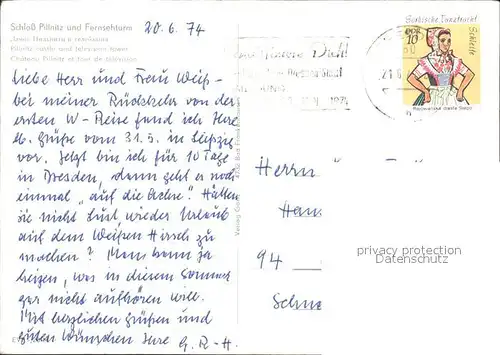 Schloß Pillnitz und Fernsehturm
Pillnitz castle and television tower
Château Pillnitz et tour de télévision
20.6.74
Liebe Herr und Frau Weiß -
bei meiner Rückkehr von der
ersten W-Reise fand ich Ihre
lb. Grüße vom 31.5. in Leipzig
vor. Jetzt bin ich für 10 Tage
in Dresden, dann geht es noch
einmal „auf die Achse“! Hätten
Sie nicht Lust, wieder Urlaub
auf dem Weißen Hirsch zu
machen? Man kann ja
heizen, was in diesem Sommer
gar nicht aufhören will.
Mit herzlichen Grüßen und
guten Wünschen Ihre G. R-H.
Verlag
Dich!
1974
21.6
Sorbische Tanztracht
DDR
10
Schleife
Herrn
94
privacy protection
Datenschutz